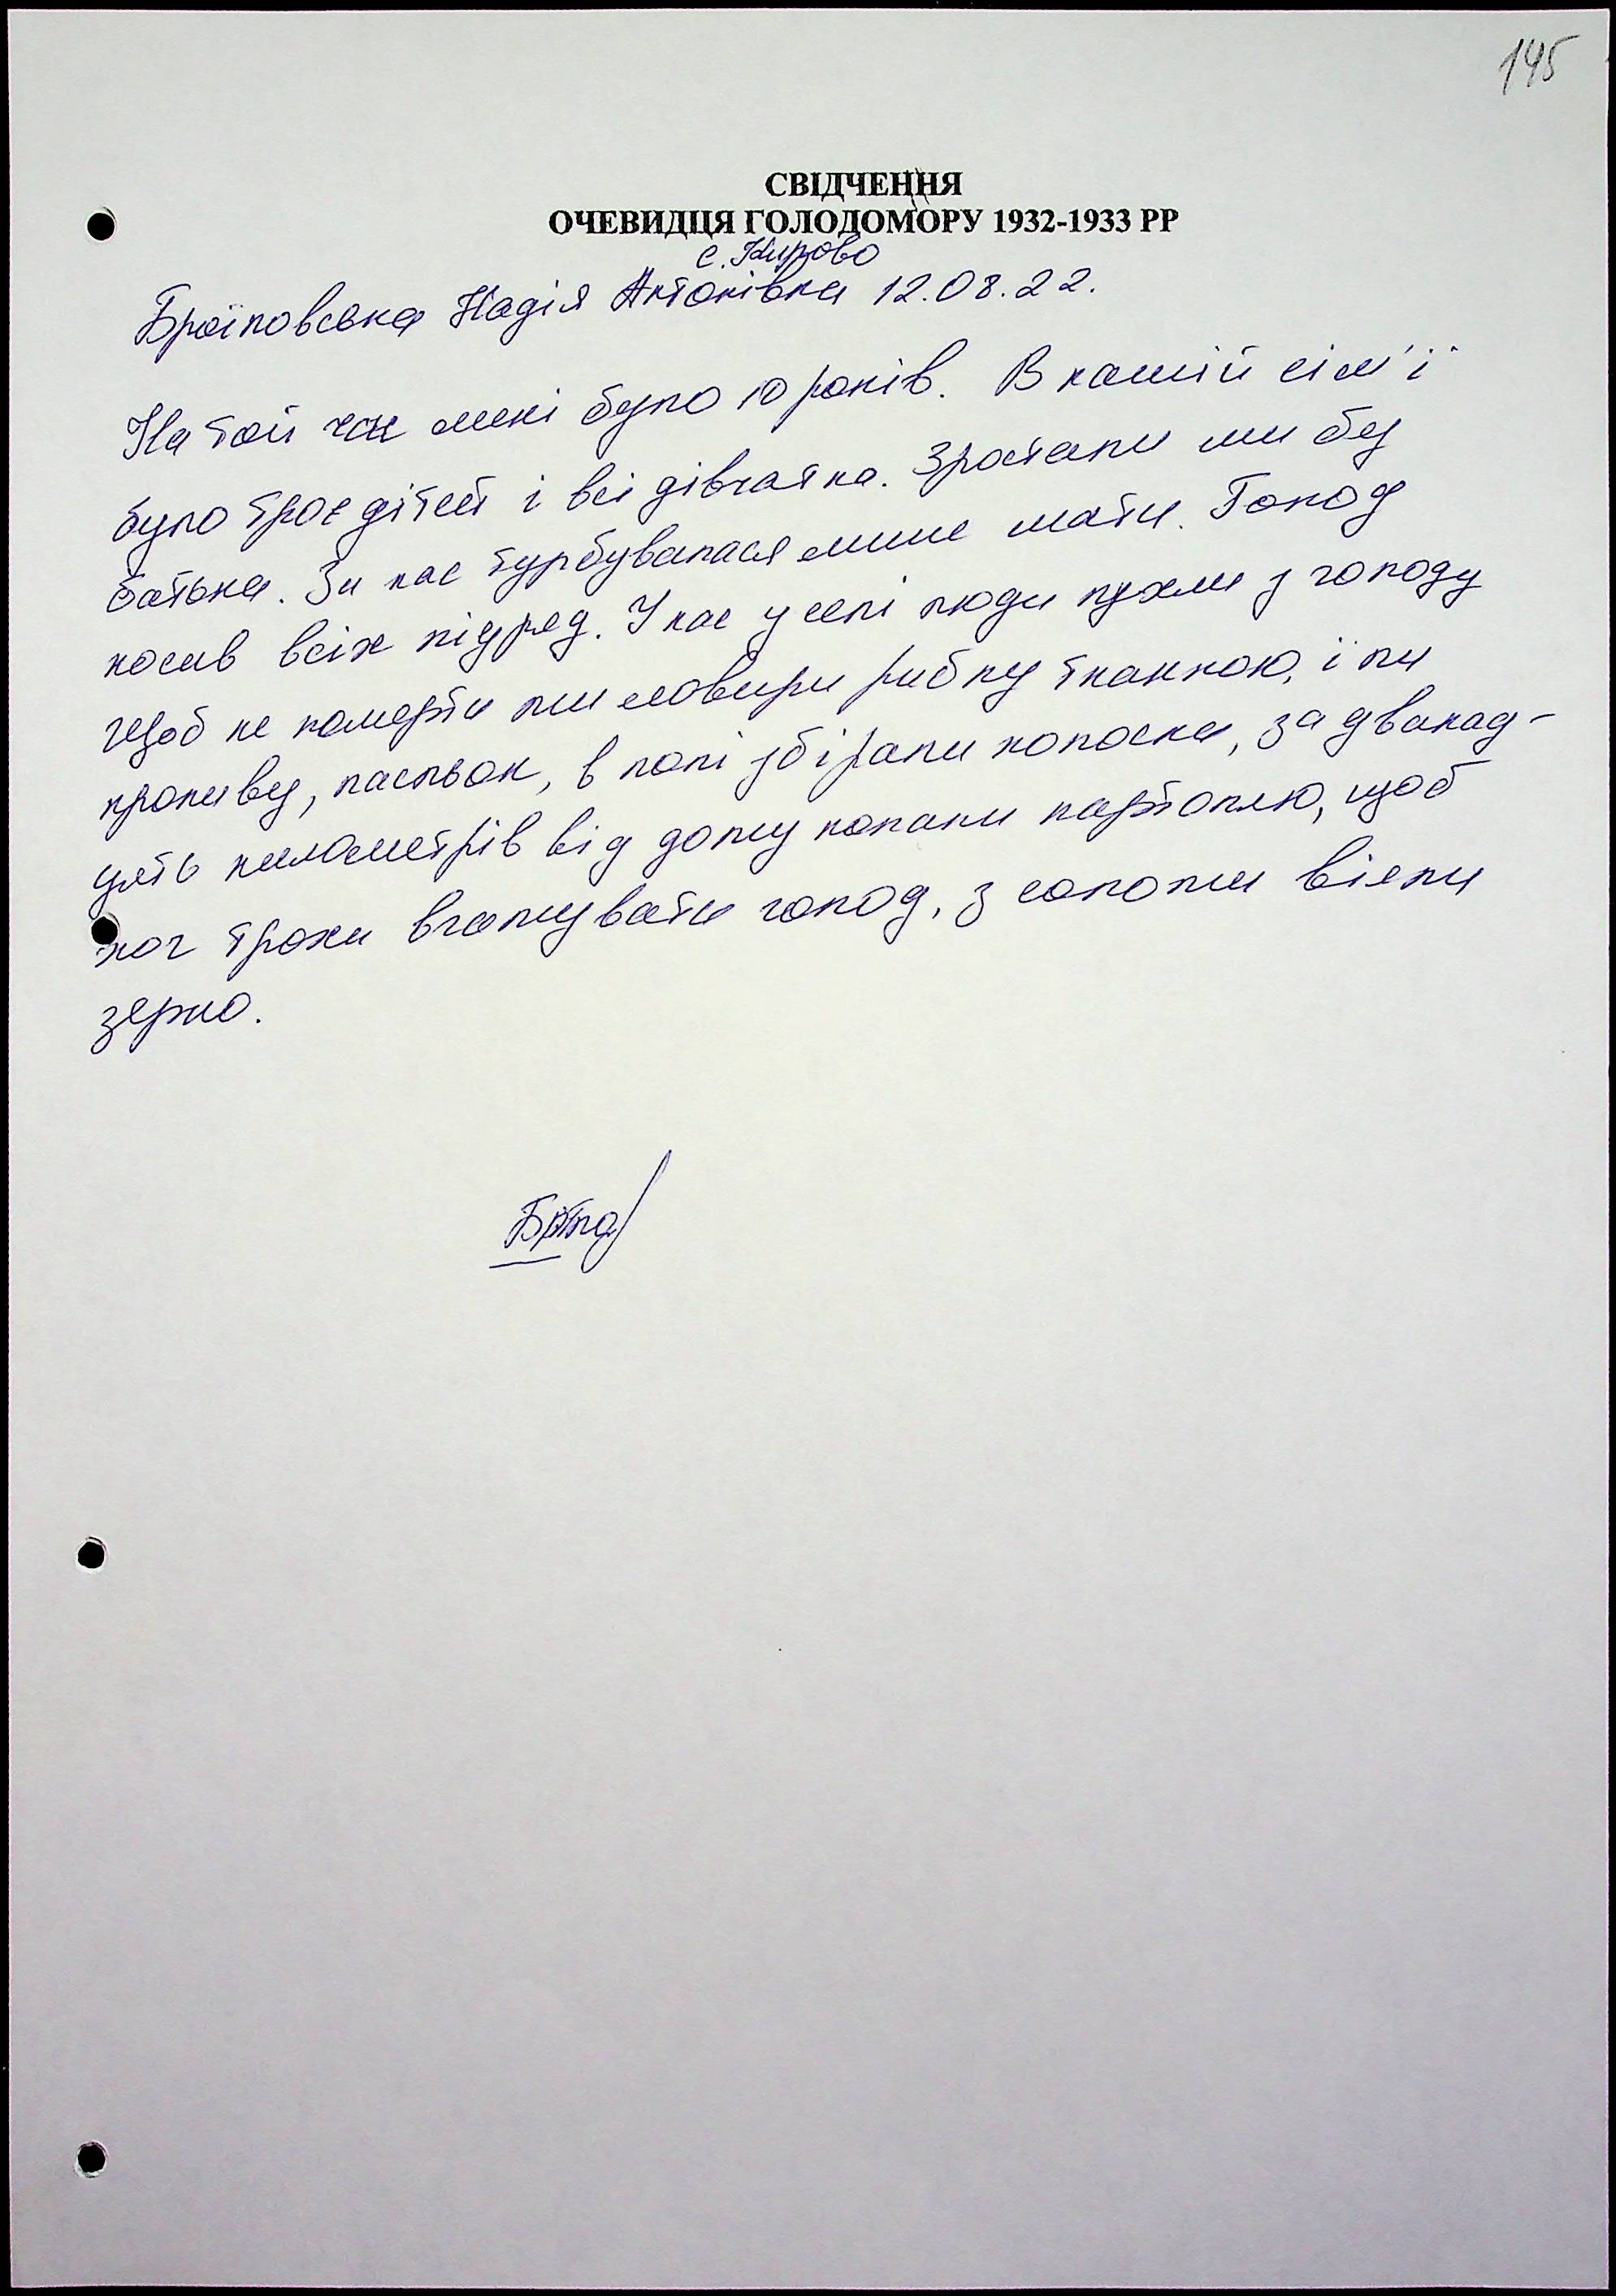 145
СВІДЧЕННЯ
ОЧЕВИДЦЯ ГОЛОДОМОРУ 1932-1933 РР
с. Кирово
Надія Антонівна 12.08.22.
На той час мені було 10 років. В нашій сім'ї
було троє дітей і всі дівчатка. Зростали ми бу
батька. За нас турбувалася лише мати. Голод
косив всіх підряд. У нас у селі люди пухли з голоду
Щоб не померти ми ловири рибку тканкою, їли
кропиву, пасльон, в полі збірали колоски, за дванад-
цять километрів від дому копали картоплю, щоб
хоч трохи вгамувати голод, з соломи віяли
зерно.